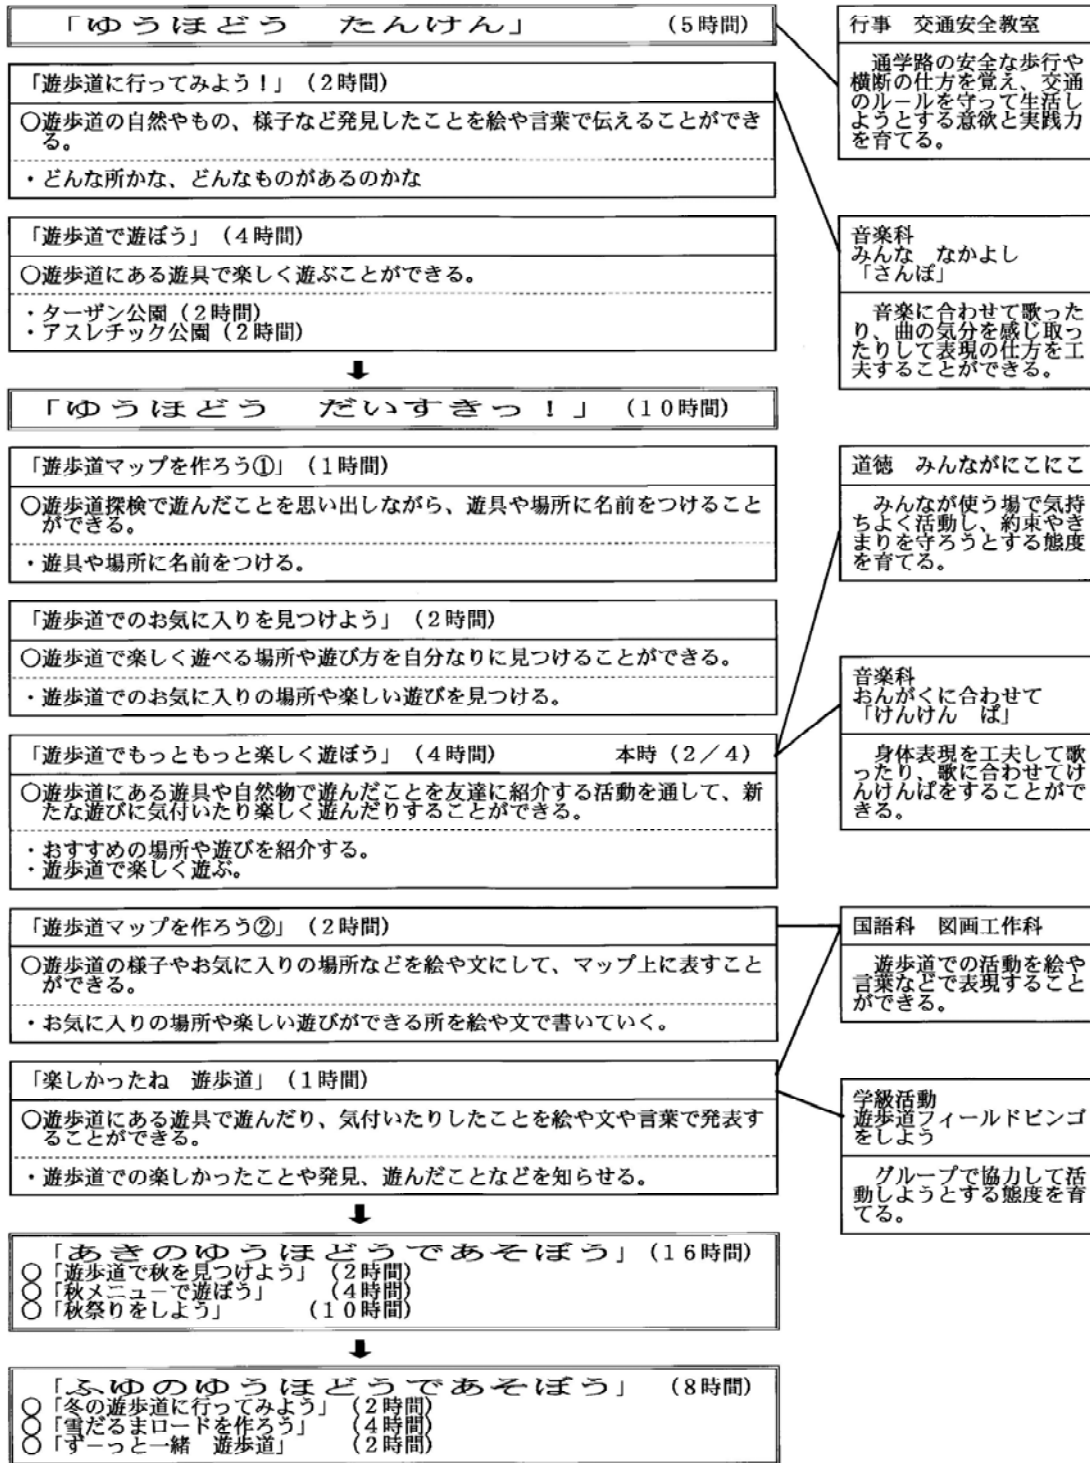 「ゆうほどう　たんけん」　（５時間）
「遊歩道に行ってみよう！」（２時間）
○遊歩道の自然やもの、様子など発見したことを絵や言葉で伝えることができ
る。
・どんな所かな、どんなものがあるのかな
「遊歩道で遊ぼう」（４時間）
○遊歩道にある遊具で楽しく遊ぶことができる。
・ターザン公園（２時間）
・アスレチック公園（２時間）
「ゆうほどう　だいすきっ！」（10時間）
「遊歩道マップを作ろう①」（１時間）
○遊歩道探検で遊んだことを思い出しながら、遊具や場所に名前をつけること
ができる。
・遊具や場所に名前をつける。
「遊歩道でのお気に入りを見つけよう」（２時間）
○遊歩道で楽しく遊べる場所や遊び方を自分なりに見つけることができる。
・遊歩道でのお気に入りの場所や楽しい遊びを見つける。
「遊歩道でもっともっと楽しく遊ぼう」（４時間）　本時（２／４）
○遊歩道にある遊具や自然物で遊んだことを友達に紹介する活動を通して、新
たな遊びに気付いたり楽しく遊んだりすることができる。
・おすすめの場所や遊びを紹介する。
・遊歩道で楽しく遊ぶ。
「遊歩道マップを作ろう②」（２時間）
○遊歩道の様子やお気に入りの場所などを絵や文にして、マップ上に表すこと
ができる。
・お気に入りの場所や楽しい遊びができる所を絵や文で書いていく。
「楽しかったね　遊歩道」（１時間）
○遊歩道にある遊具で遊んだり、気付いたりしたことを絵や文や言葉で発表す
ることができる。
・遊歩道での楽しかったことや発見、遊んだことなどを知らせる。
「あきのゆうほどうであそぼう」（１６時間）
○「遊歩道で秋を見つけよう」（２時間）
○「秋メニューで遊ぼう」　（４時間）
○「秋祭りをしよう」　（１０時間）
「ふゆのゆうほどうであそぼう」　（８時間）
○「冬の遊歩道に行ってみよう」（２時間）
○「雪だるまロードを作ろう」　（４時間）
○「ずーっと一緒　遊歩道」　（２時間）
行事　交通安全教室
通学路の安全な歩行や
横断の仕方を覚え、交通
のルールを守って生活し
ようとする意欲と実践力
を育てる。
音楽科
みんな　なかよし
「さんぽ」
音楽に合わせて歌った
り、曲の気分を感じ取っ
たりして表現の仕方を工
夫することができる。
道徳　みんながにこにこ
みんなが使う場で気持
ちよく活動し、約束やき
まりを守ろうとする態度
を育てる。
音楽科
おんがくに合わせて
「けんけん　ぱ」
身体表現を工夫して歌
ったり、歌に合わせてけ
んけんぱをすることがで
きる。
国語科　図画工作科
遊歩道での活動を絵や
言葉などで表現すること
ができる。
学級活動
遊歩道フィールドビンゴ
をしよう
グループで協力して活
動しようとする態度を育
てる。